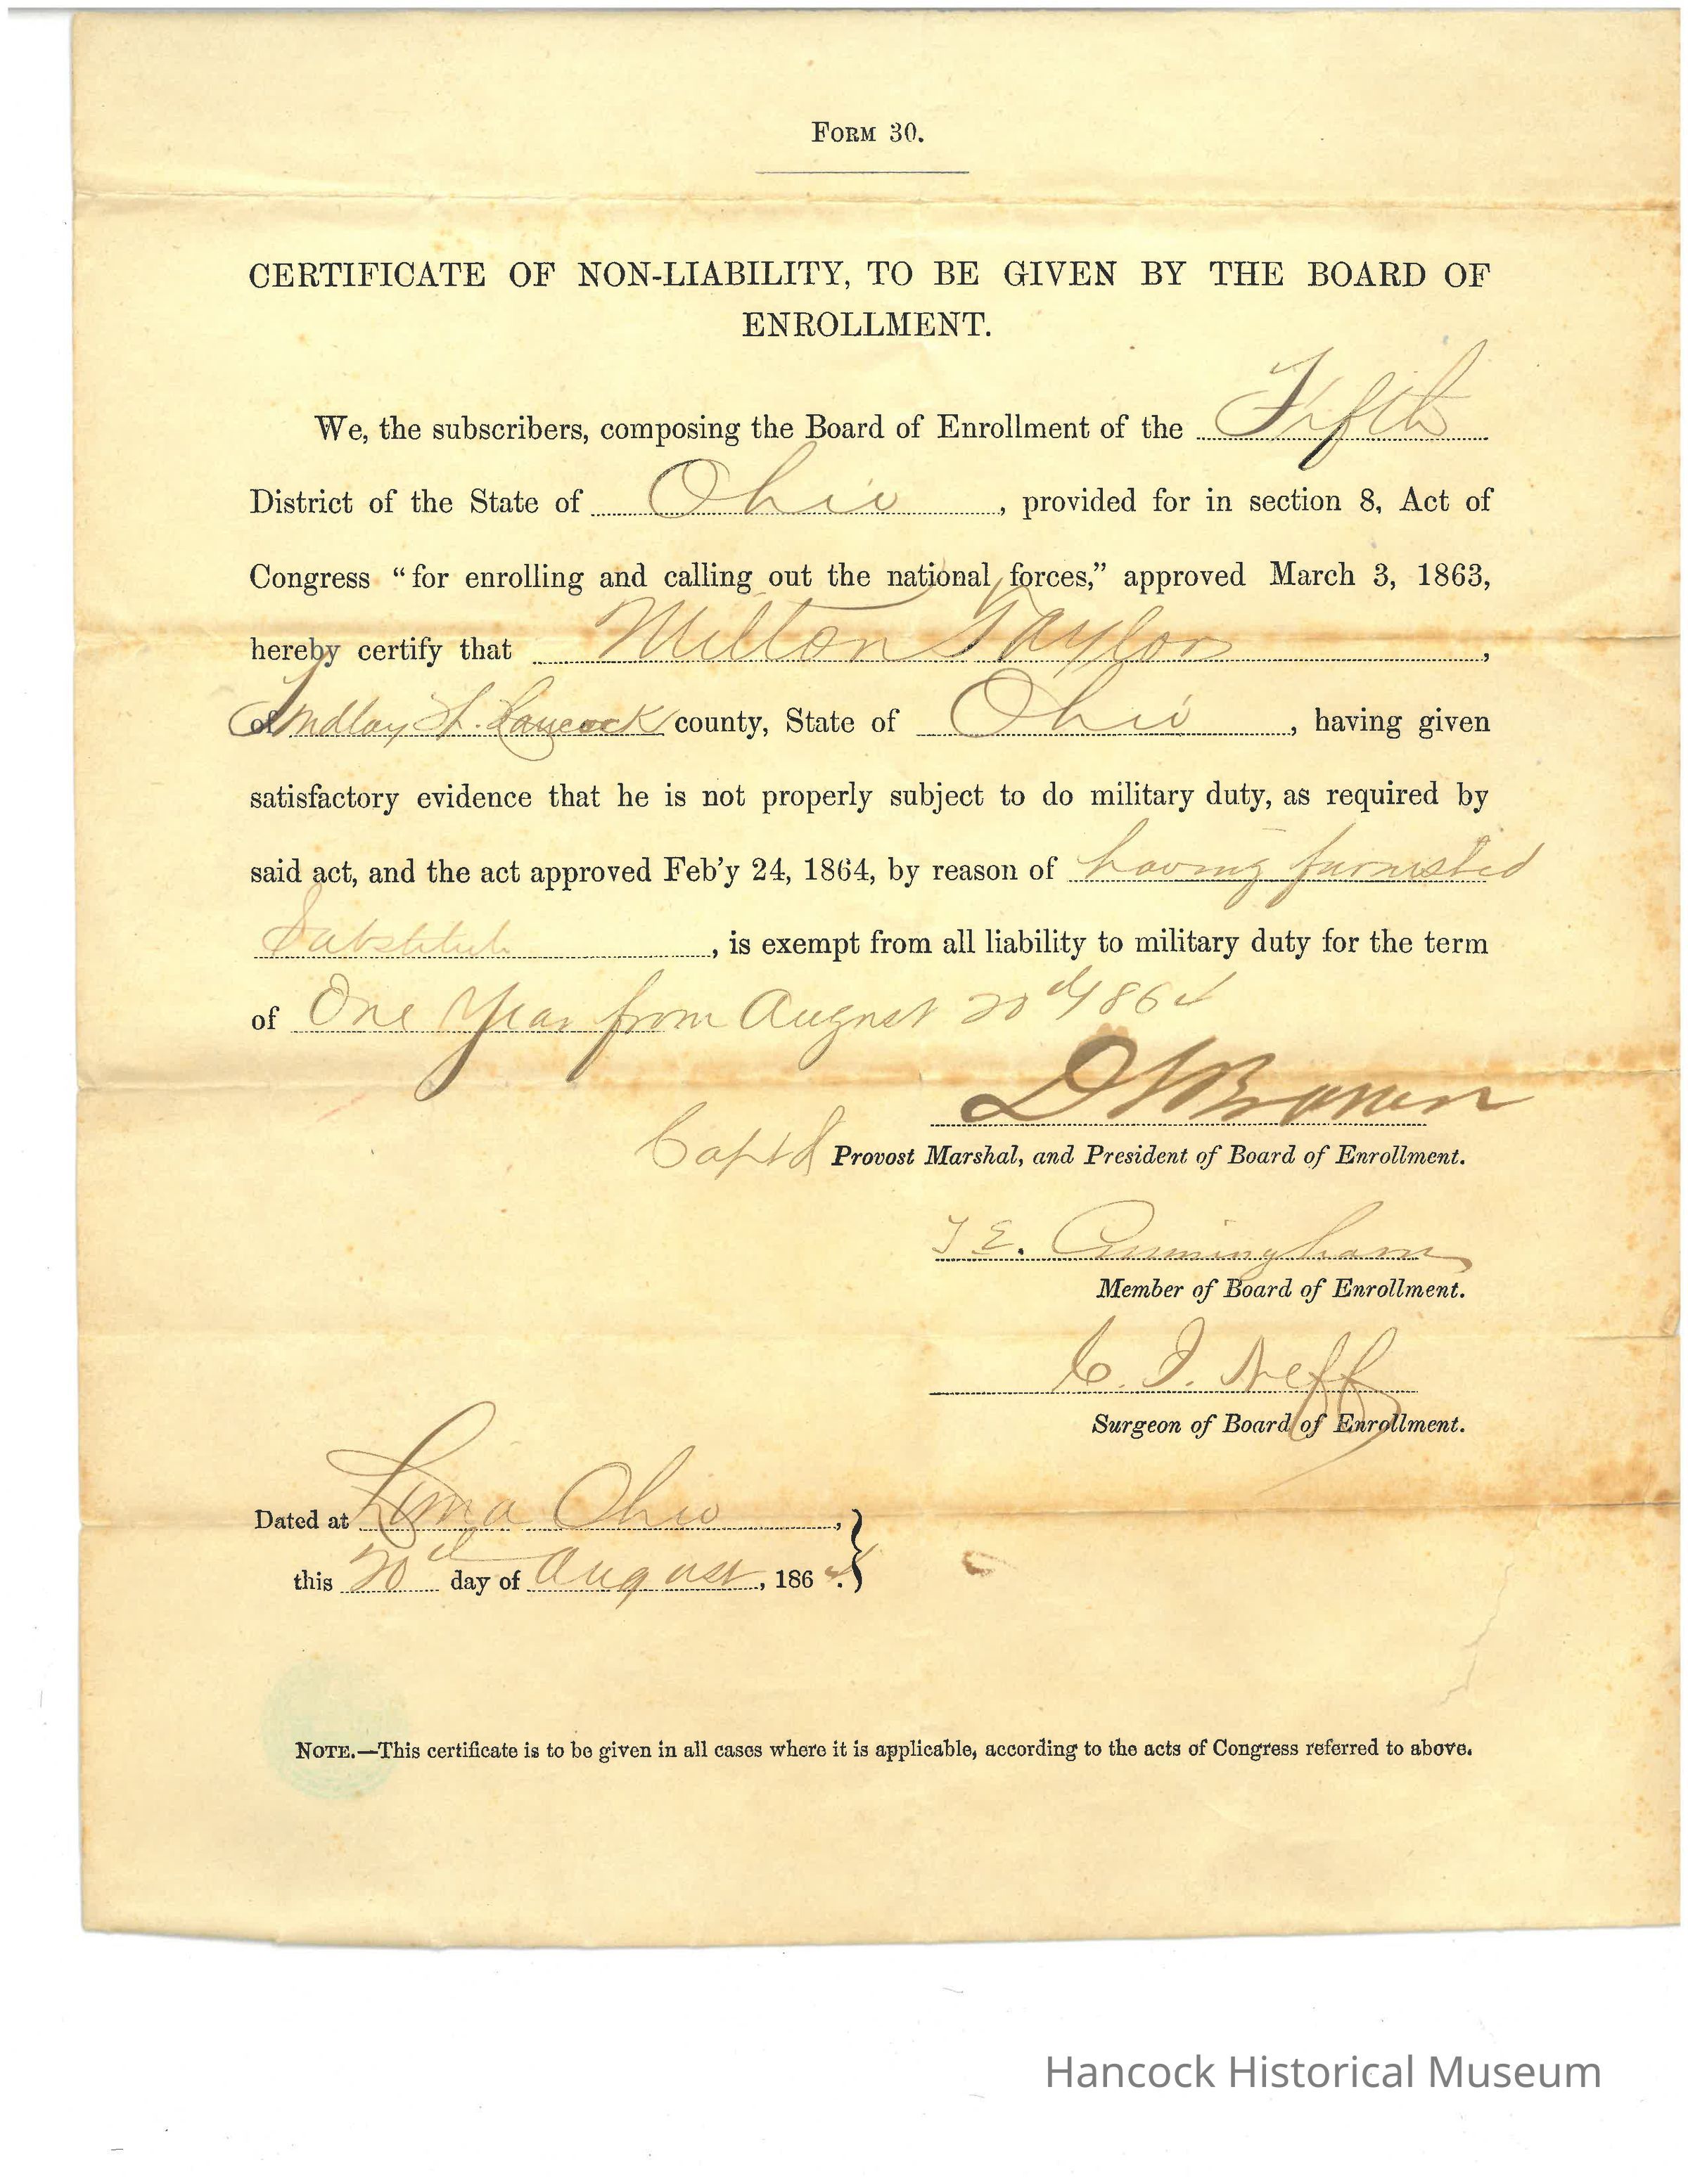 FORM 30.
CERTIFICATE OF NON-LIABILITY, TO BE GIVEN BY THE BOARD OF
ENROLLMENT.
We, the subscribers, composing the Board of Enrollment of the Fifth
District of the State of Ohio, provided for in section 8, Act of
Congress “for enrolling and calling out the national forces,” approved March 3, 1863,
hereby certify that Milton Taylor,
of Findlay Hancock county, State of Ohio, having given
satisfactory evidence that he is not properly subject to do military duty, as required by
said act, and the act approved Feb'y 24, 1864, by reason of having furnished
Substitute, is exempt from all liability to military duty for the term
of One Year from August 20th 1864
Brown
Capt & Provost Marshal, and President of Board of Enrollment.
T E. Cunningham
Member of Board of Enrollment.
C. I. Neff
Surgeon of Board of Enrollment.
Dated at Lima Ohio,
this 20th day of August, 1864.
NOTE.—This certificate is to be given in all cases where it is applicable, according to the acts of Congress referred to above.
Hancock Historical Museum